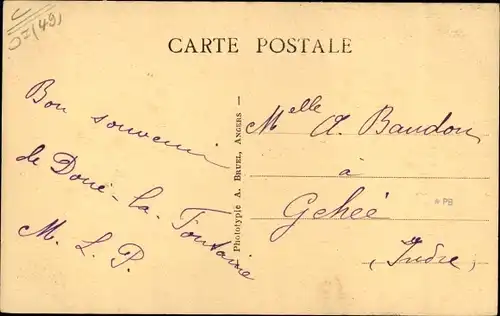 (49)
CARTE POSTALE
Bon souvenir
de Doué-la-Fontaine
M. L. P.
Phototypie A. Bruel, Angers —
Melle A. Baudon
à
Gehée
(Indre)
PB